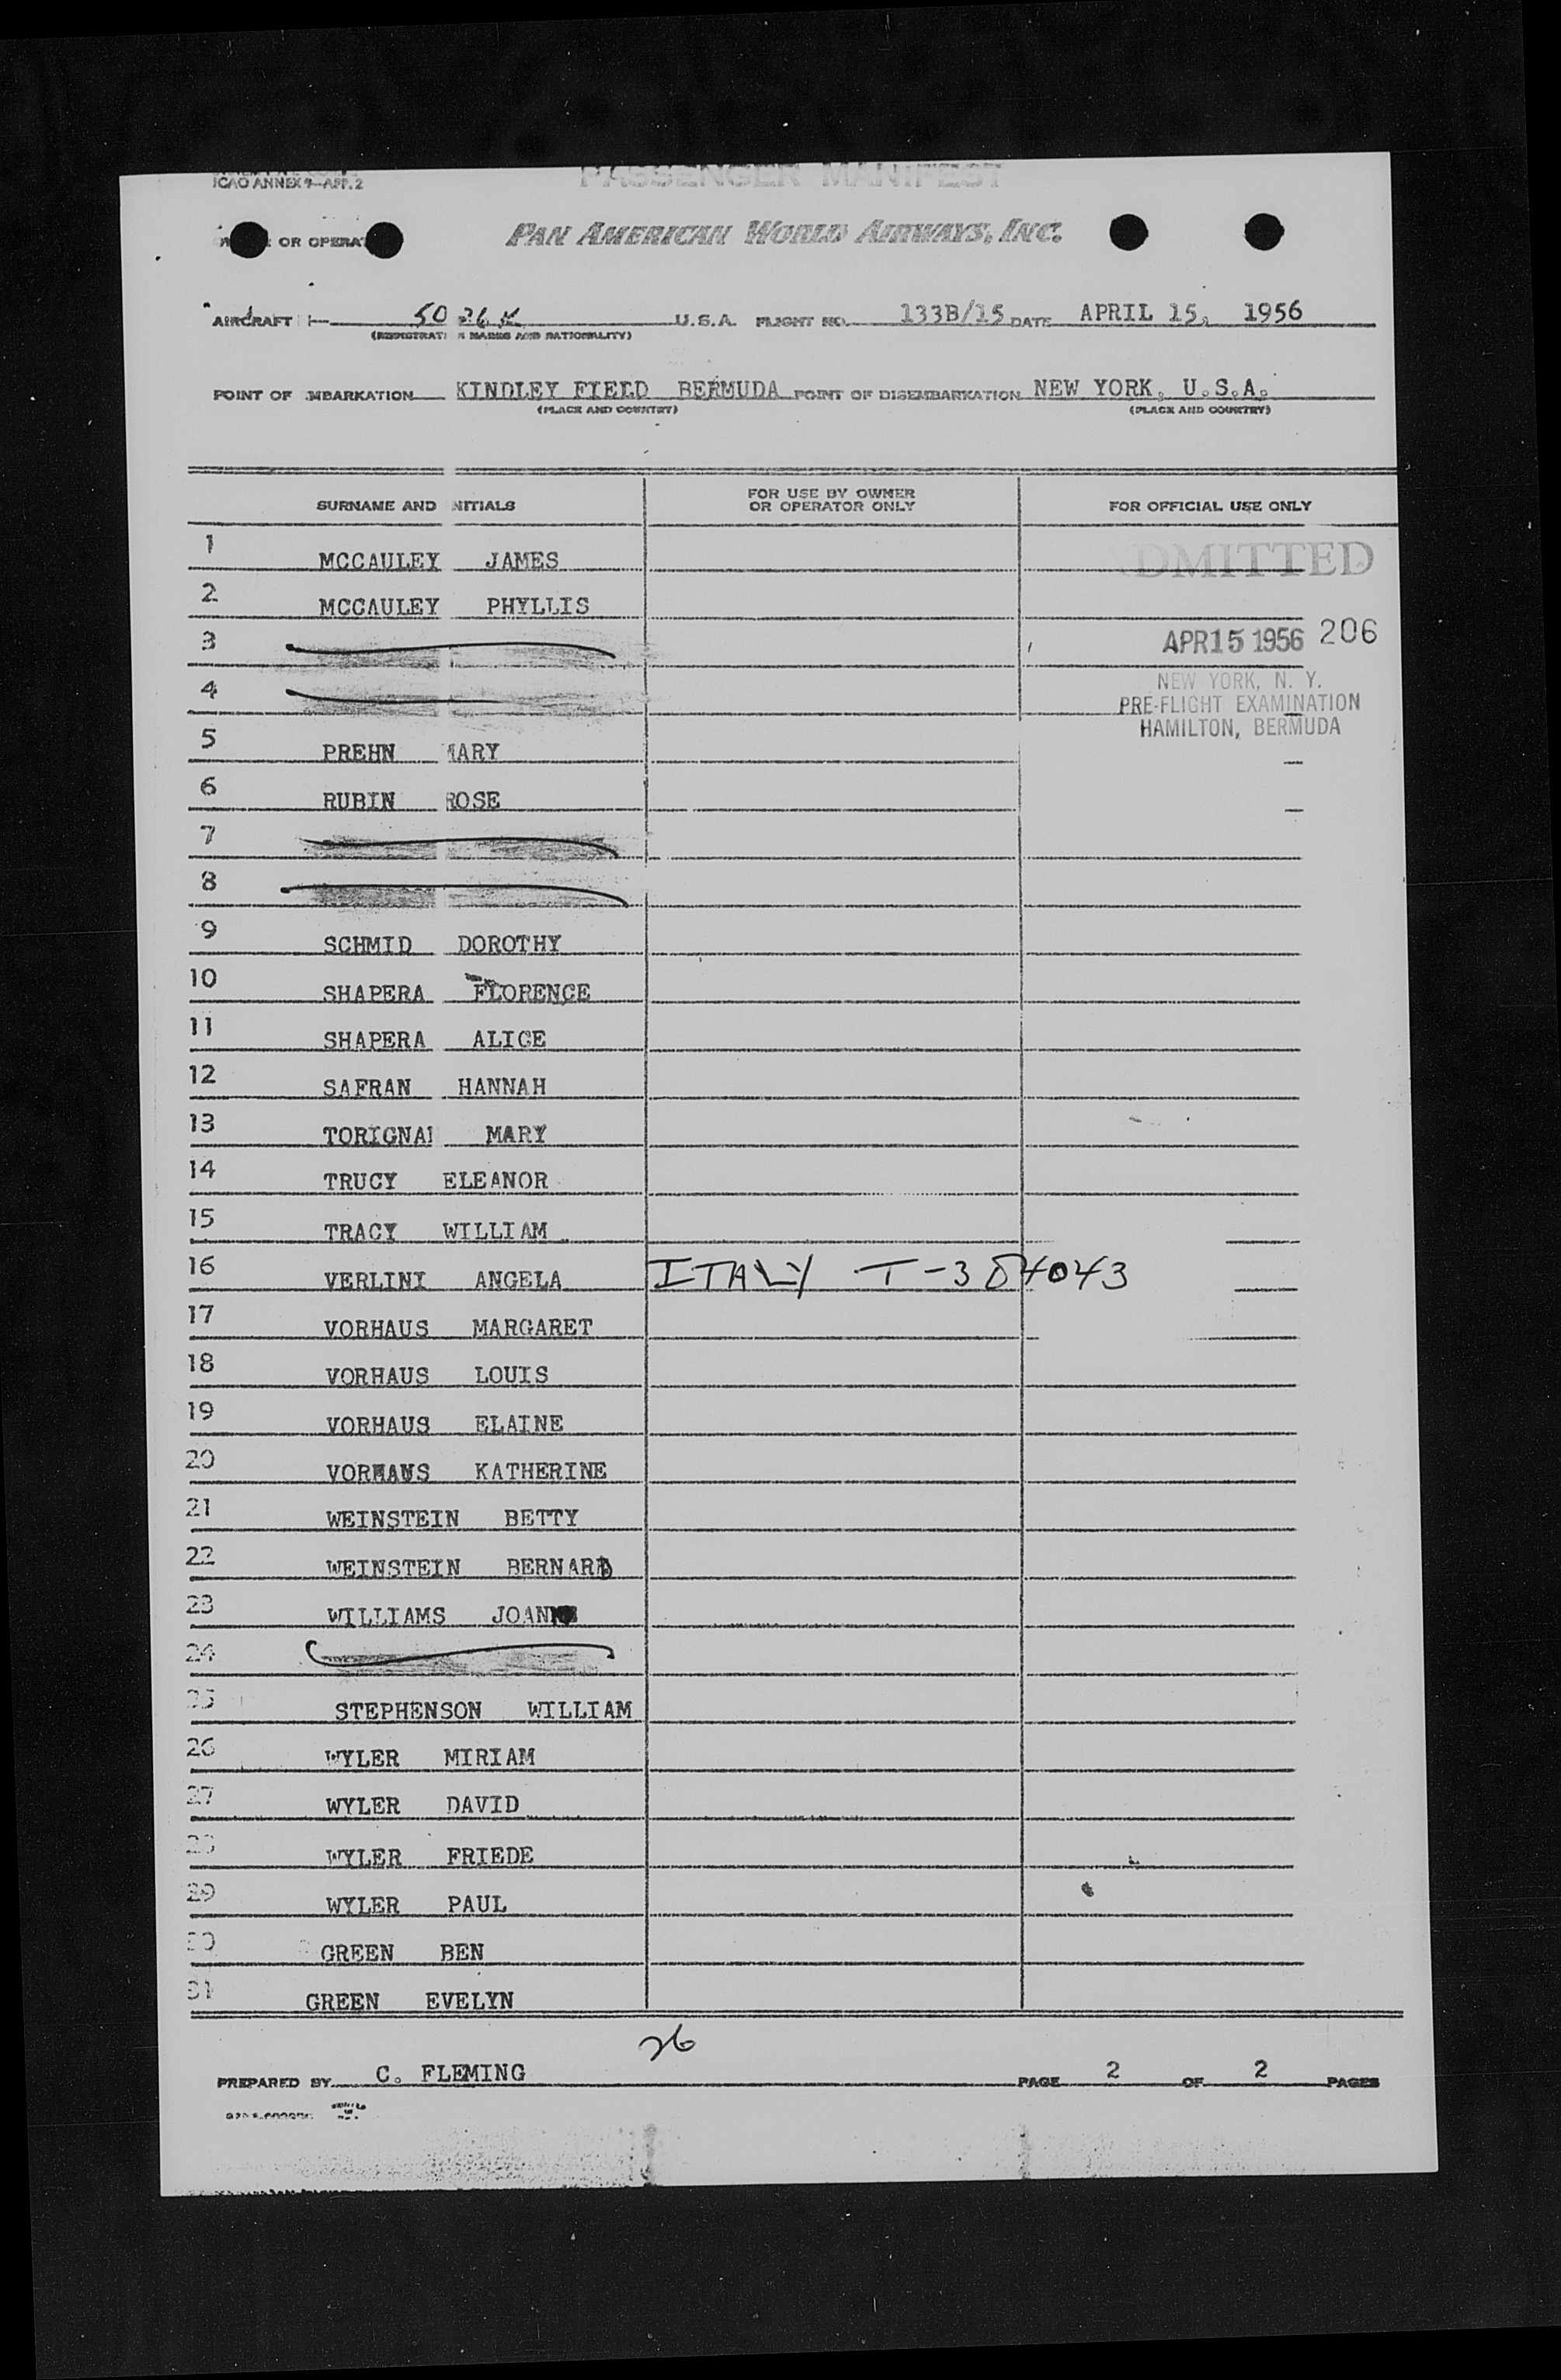 ICAO ANNEX 9-APP. 2
PASSENGER MANIFEST
OR OPERAT
PAN AMERICAN WORLD AIRWAYS, INC.
AIRCRAFT 5026K U.S.A. FLIGHT NO. 133B/15 DATE APRIL 15, 1956
(REGISTRATI N MARKS AND NATIONALITY)
POINT OF MBARKATION KINDLEY FIELD BERMUDA POINT OF DISEMBARKATION NEW YORK, U.S.A.
(PLACE AND COUNTRY) (PLACE AND COUNTRY)
SURNAME AND NITIALS
FOR USE BY OWNER
OR OPERATOR ONLY
FOR OFFICIAL USE ONLY
1 MCCAULEY JAMES
DMITTED
2 MCCAULEY PHYLLIS
3
APR 15 1956 206
4
NEW YORK, N. Y.
PRE-FLIGHT EXAMINATION
HAMILTON, BERMUDA
5 PREHN MARY
6 RUBIN ROSE
7
8
9 SCHMID DOROTHY
10 SHAPERA FLORENCE
11 SHAPERA ALICE
12 SAFRAN HANNAH
13 TORIGNAI MARY
14 TRUCY ELEANOR
15 TRACY WILLIAM
16 VERLINI ANGELA ITALY T-384043
17 VORHAUS MARGARET
18 VORHAUS LOUIS
19 VORHAUS ELAINE
20 VORHAUS KATHERINE
21 WEINSTEIN BETTY
22 WEINSTEIN BERNARD
23 WILLIAMS JOAN
24
25 STEPHENSON WILLIAM
26 WYLER MIRIAM
27 WYLER DAVID
28 WYLER FRIEDE
29 WYLER PAUL
30 GREEN BEN
31 GREEN EVELYN
26
PREPARED BY C. FLEMING PAGE 2 OF 2 PAGES